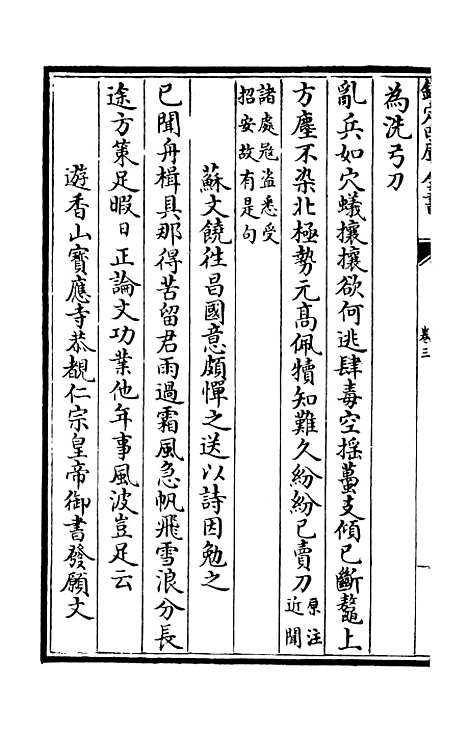 欽定四庫全書
卷三
為洗弓刀
亂兵如穴蟻攘攘欲何逃肆毒空揺蠆支傾已斷鼇上
方塵不染北極勢元髙佩犢知難久紛紛已賣刀原注近聞
諸處冦盜悉受
招安故有是句
蘇文饒徃昌國意頗憚之送以詩因勉之
已聞舟楫具那得苦留君雨過霜風急帆飛雪浪分長
途方策足暇日正論文功業他年事風波豈足云
遊香山寳應寺恭覩仁宗皇帝御書發願文